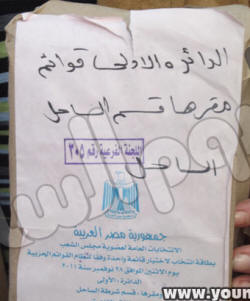 الدائرة الاولى قوائم
مقرها قسم الساحل
اللجنة الفرعية رقم ٢٠٥
الساحل
جمهورية مصر العربية
الانتخابات العامة لعضوية مجلس الشعب
بطاقة انتخاب لاختيار قائمة واحدة وفقا لنظام القوائم الحزبية
يوم الاثنين الموافق ٢٨ نوفمبر سنة ٢٠١١
الدائرة: الأولى
ومقرها: قسم شرطة الساحل
www.your